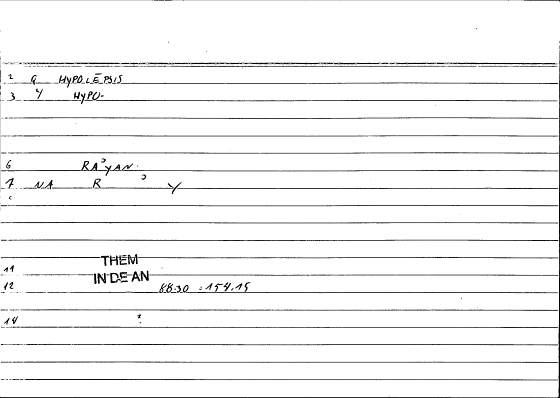 2 G HYPOLĒPSIS
3 Y HYPO-
6 RAʾYAN.
7 NA R ʾ Y
11 THEM
IN DE AN
12 88.30 = 154.15
14